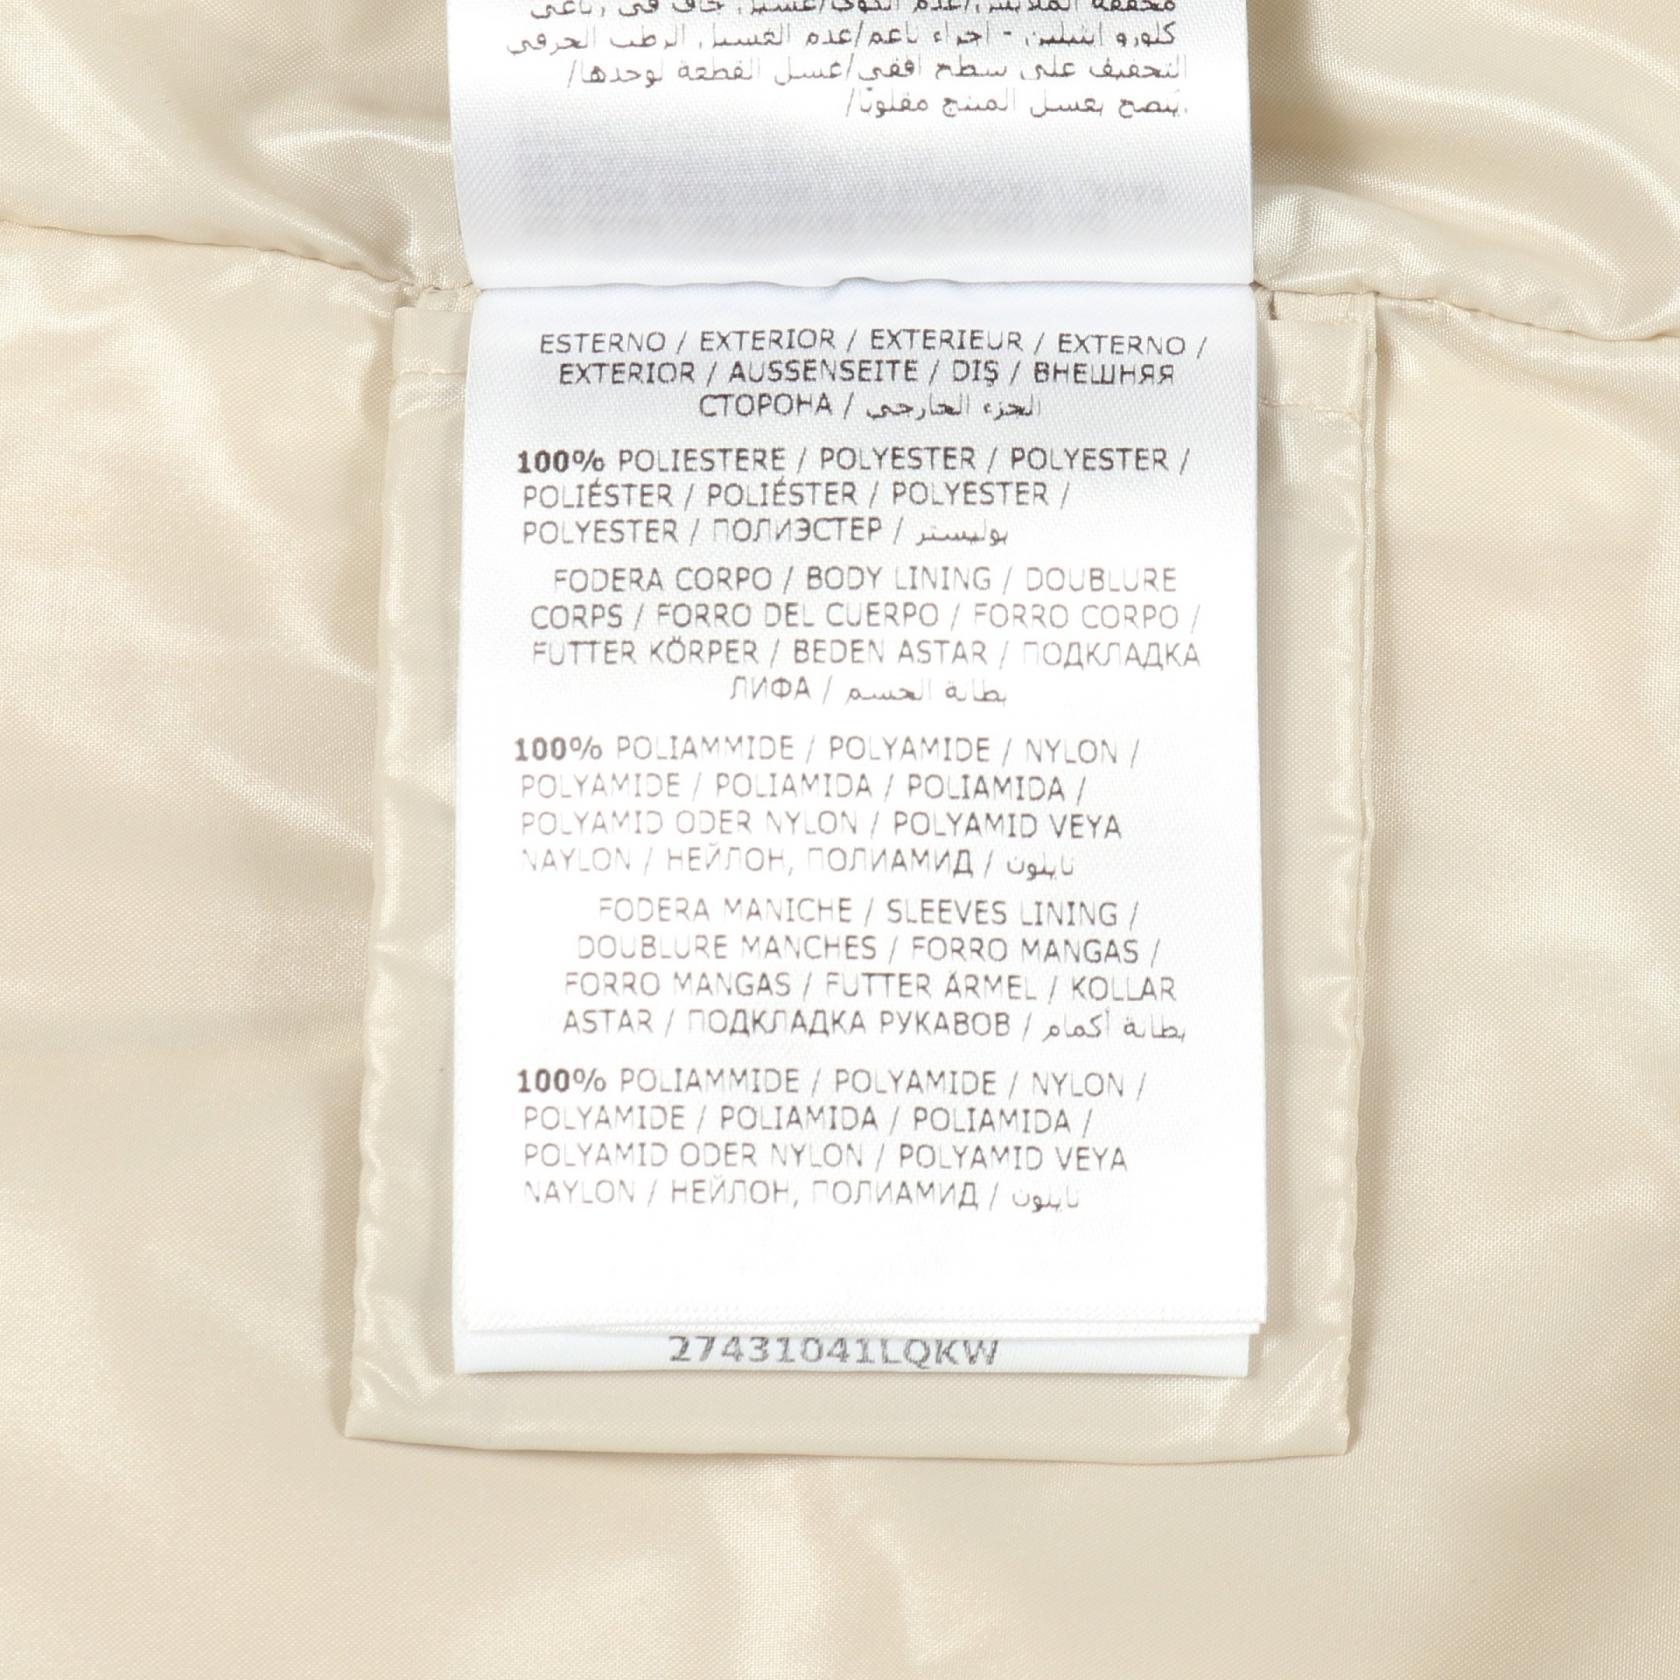 كلورو إيثيلين - إجراء ناعم/عدم الغسيل الرطب الحرفي
التجفيف على سطح أفقي/غسل القطعة لوحدها/
يُنصح بغسل المنتج مقلوبًا/.
ESTERNO / EXTERIOR / EXTERIEUR / EXTERNO /
EXTERIOR / AUSSENSEITE / DIŞ / ВНЕШНЯЯ
СТОРОНА / الجزء الخارجي
100% POLIESTERE / POLYESTER / POLYESTER /
POLIÉSTER / POLIÉSTER / POLYESTER /
POLYESTER / ПОЛИЭСТЕР / بوليستر
FODERA CORPO / BODY LINING / DOUBLURE
CORPS / FORRO DEL CUERPO / FORRO CORPO /
FUTTER KÖRPER / BEDEN ASTAR / ПОДКЛАДКА
ЛИФА / بطانة الجسم
100% POLIAMMIDE / POLYAMIDE / NYLON /
POLYAMIDE / POLIAMIDA / POLIAMIDA /
POLYAMID ODER NYLON / POLYAMID VEYA
NAYLON / НЕЙЛОН, ПОЛИАМИД / نايلون
FODERA MANICHE / SLEEVES LINING /
DOUBLURE MANCHES / FORRO MANGAS /
FORRO MANGAS / FUTTER ÄRMEL / KOLLAR
ASTAR / ПОДКЛАДКА РУКАВОВ / بطانة أكمام
100% POLIAMMIDE / POLYAMIDE / NYLON /
POLYAMIDE / POLIAMIDA / POLIAMIDA /
POLYAMID ODER NYLON / POLYAMID VEYA
NAYLON / НЕЙЛОН, ПОЛИАМИД / نايلون
27431041LQKW